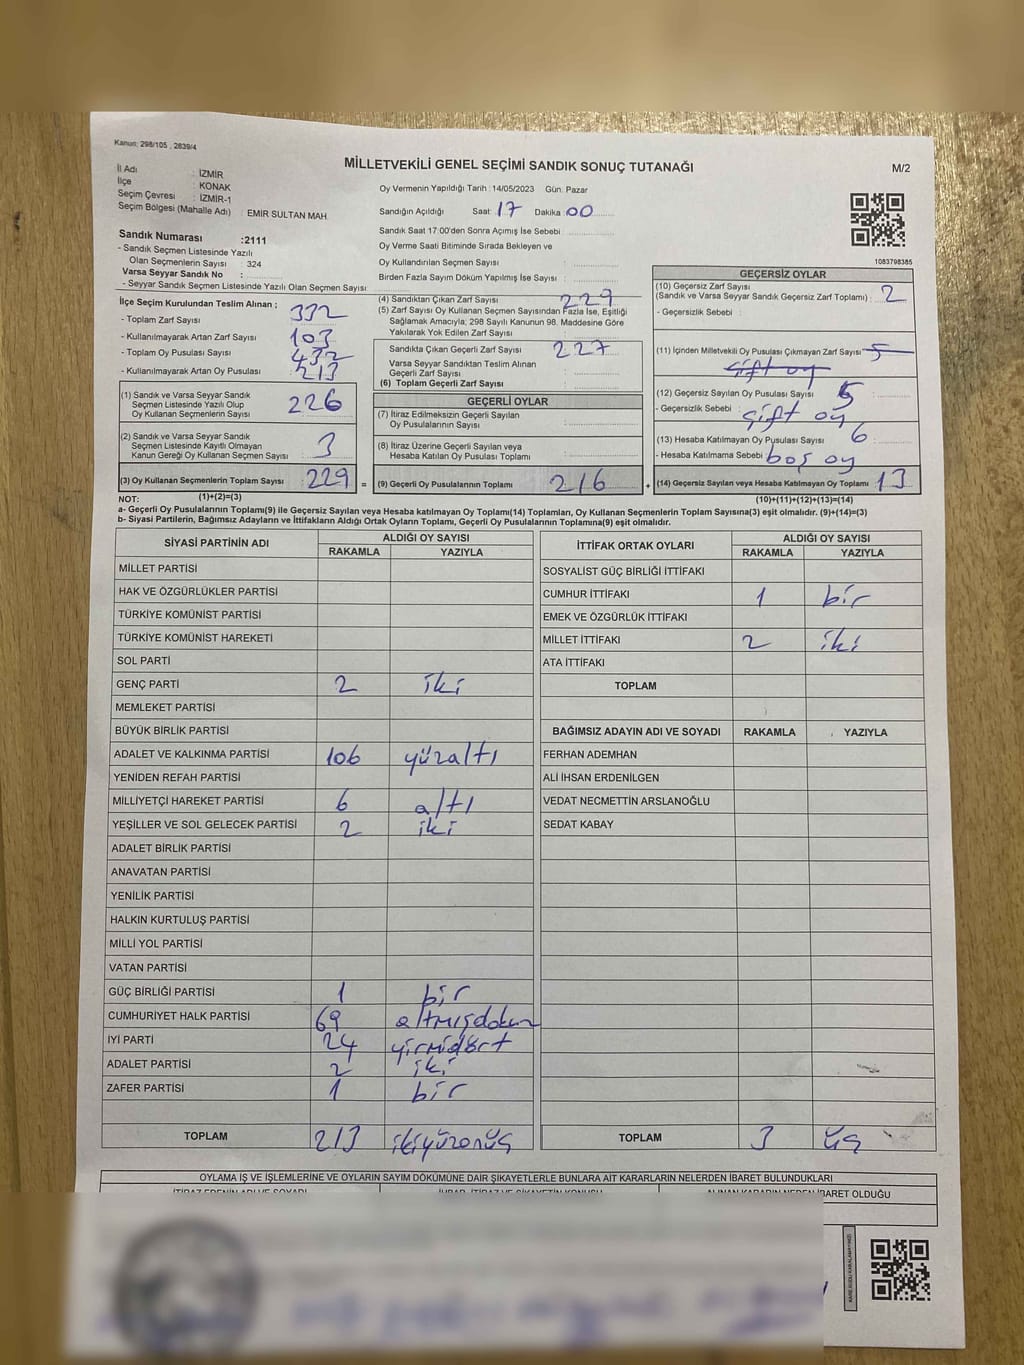 Kanun: 298/105 , 2839/4
MİLLETVEKİLİ GENEL SEÇİMİ SANDIK SONUÇ TUTANAĞI
M/2
İl Adı : İZMİR
İlçe : KONAK
Seçim Çevresi : İZMİR-1
Seçim Bölgesi (Mahalle Adı) : EMİR SULTAN MAH.
Oy Vermenin Yapıldığı Tarih : 14/05/2023 Gün: Pazar
Sandığın Açıldığı Saat: 17 Dakika: 00
Sandık Saat 17:00'den Sonra Açımış İse Sebebi :
Oy Verme Saati Bitiminde Sırada Bekleyen ve
Oy Kullandırılan Seçmen Sayısı :
Birden Fazla Sayım Döküm Yapılmış İse Sayısı :
Sandık Numarası :2111
- Sandık Seçmen Listesinde Yazılı
Olan Seçmenlerin Sayısı : 324
Varsa Seyyar Sandık No :
- Seyyar Sandık Seçmen Listesinde Yazılı Olan Seçmen Sayısı :
1083798385
İlçe Seçim Kurulundan Teslim Alınan ;
- Toplam Zarf Sayısı : 332
- Kullanılmayarak Artan Zarf Sayısı : 103
- Toplam Oy Pusulası Sayısı : 432
- Kullanılmayarak Artan Oy Pusulası : 213
(1) Sandık ve Varsa Seyyar Sandık
Seçmen Listesinde Yazılı Olup
Oy Kullanan Seçmenlerin Sayısı : 226
(2) Sandık ve Varsa Seyyar Sandık
Seçmen Listesinde Kayıtlı Olmayan
Kanun Gereği Oy Kullanan Seçmen Sayısı : 3
(3) Oy Kullanan Seçmenlerin Toplam Sayısı : 229 =
(4) Sandıktan Çıkan Zarf Sayısı : 229
(5) Zarf Sayısı Oy Kullanan Seçmen Sayısından Fazla İse, Eşitliği
Sağlamak Amacıyla; 298 Sayılı Kanunun 98. Maddesine Göre
Yakılarak Yok Edilen Zarf Sayısı :
Sandıkta Çıkan Geçerli Zarf Sayısı : 227
Varsa Seyyar Sandıktan Teslim Alınan
Geçerli Zarf Sayısı :
(6) Toplam Geçerli Zarf Sayısı :
GEÇERLİ OYLAR
(7) İtiraz Edilmeksizin Geçerli Sayılan
Oy Pusulalarının Sayısı :
(8) İtiraz Üzerine Geçerli Sayılan veya
Hesaba Katılan Oy Pusulası Toplamı :
(9) Geçerli Oy Pusulalarının Toplamı : 216 +
GEÇERSİZ OYLAR
(10) Geçersiz Zarf Sayısı
(Sandık ve Varsa Seyyar Sandık Geçersiz Zarf Toplamı) : 2
- Geçersizlik Sebebi :
(11) İçinden Milletvekili Oy Pusulası Çıkmayan Zarf Sayısı : 5
çift oy
(12) Geçersiz Sayılan Oy Pusulası Sayısı : 5
- Geçersizlik Sebebi : çift oy
(13) Hesaba Katılmayan Oy Pusulası Sayısı : 6
- Hesaba Katılmama Sebebi : boş oy
(14) Geçersiz Sayılan veya Hesaba Katılmayan Oy Toplamı : 13
NOT: (1)+(2)=(3)
(10)+(11)+(12)+(13)=(14)
a- Geçerli Oy Pusulalarının Toplamı(9) ile Geçersiz Sayılan veya Hesaba katılmayan Oy Toplamı(14) Toplamları, Oy Kullanan Seçmenlerin Toplam Sayısına(3) eşit olmalıdır. (9)+(14)=(3)
b- Siyasi Partilerin, Bağımsız Adayların ve İttifakların Aldığı Ortak Oyların Toplamı, Geçerli Oy Pusulalarının Toplamına(9) eşit olmalıdır.
SİYASİ PARTİNİN ADI ALDIĞI OY SAYISI
RAKAMLA YAZIYLA
MİLLET PARTİSİ
HAK VE ÖZGÜRLÜKLER PARTİSİ
TÜRKİYE KOMÜNİST PARTİSİ
TÜRKİYE KOMÜNİST HAREKETİ
SOL PARTİ
GENÇ PARTİ 2 iki
MEMLEKET PARTİSİ
BÜYÜK BİRLİK PARTİSİ
ADALET VE KALKINMA PARTİSİ 106 yüzaltı
YENİDEN REFAH PARTİSİ
MİLLİYETÇİ HAREKET PARTİSİ 6 altı
YEŞİLLER VE SOL GELECEK PARTİSİ 2 iki
ADALET BİRLİK PARTİSİ
ANAVATAN PARTİSİ
YENİLİK PARTİSİ
HALKIN KURTULUŞ PARTİSİ
MİLLİ YOL PARTİSİ
VATAN PARTİSİ
GÜÇ BİRLİĞİ PARTİSİ 1 bir
CUMHURİYET HALK PARTİSİ 69 altmışdokuz
İYİ PARTİ 24 yirmidört
ADALET PARTİSİ 2 iki
ZAFER PARTİSİ 1 bir
TOPLAM 213 ikiyüzonüç
İTTİFAK ORTAK OYLARI ALDIĞI OY SAYISI
RAKAMLA YAZIYLA
SOSYALİST GÜÇ BİRLİĞİ İTTİFAKI
CUMHUR İTTİFAKI 1 bir
EMEK VE ÖZGÜRLÜK İTTİFAKI
MİLLET İTTİFAKI 2 iki
ATA İTTİFAKI
TOPLAM
BAĞIMSIZ ADAYIN ADI VE SOYADI RAKAMLA YAZIYLA
FERHAN ADEMHAN
ALİ İHSAN ERDENİLGEN
VEDAT NECMETTİN ARSLANOĞLU
SEDAT KABAY
TOPLAM 3 üç
OYLAMA İŞ VE İŞLEMLERİNE VE OYLARIN SAYIM DÖKÜMÜNE DAİR ŞİKAYETLERLE BUNLARA AİT KARARLARIN NELERDEN İBARET BULUNDUKLARI
İTİRAZ EDENİN ADI VE SOYADI İHBAR, İTİRAZ VE ŞİKAYETİN KONUSU ALINAN KARARIN NEDEN İBARET OLDUĞU
KARE KODU KARALAMAYINIZ!